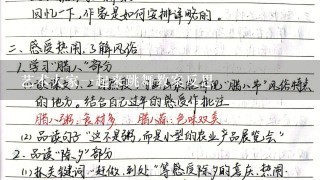 回忆一下,作家是如何安排详略的。
二、感受热闹,了解风俗
1.学习“腊八”部分
“腊八节”风俗特点
的地方。结合自己过年的感受作批注
腊八粥:食材多 腊八蒜:色味双美
(2)品读句子“这不是粥,而是小型的农业产品展览会”
2.品读“除夕”部分
(1)抓关键词,“赶做,到处”等感受除夕的喜庆、热闹